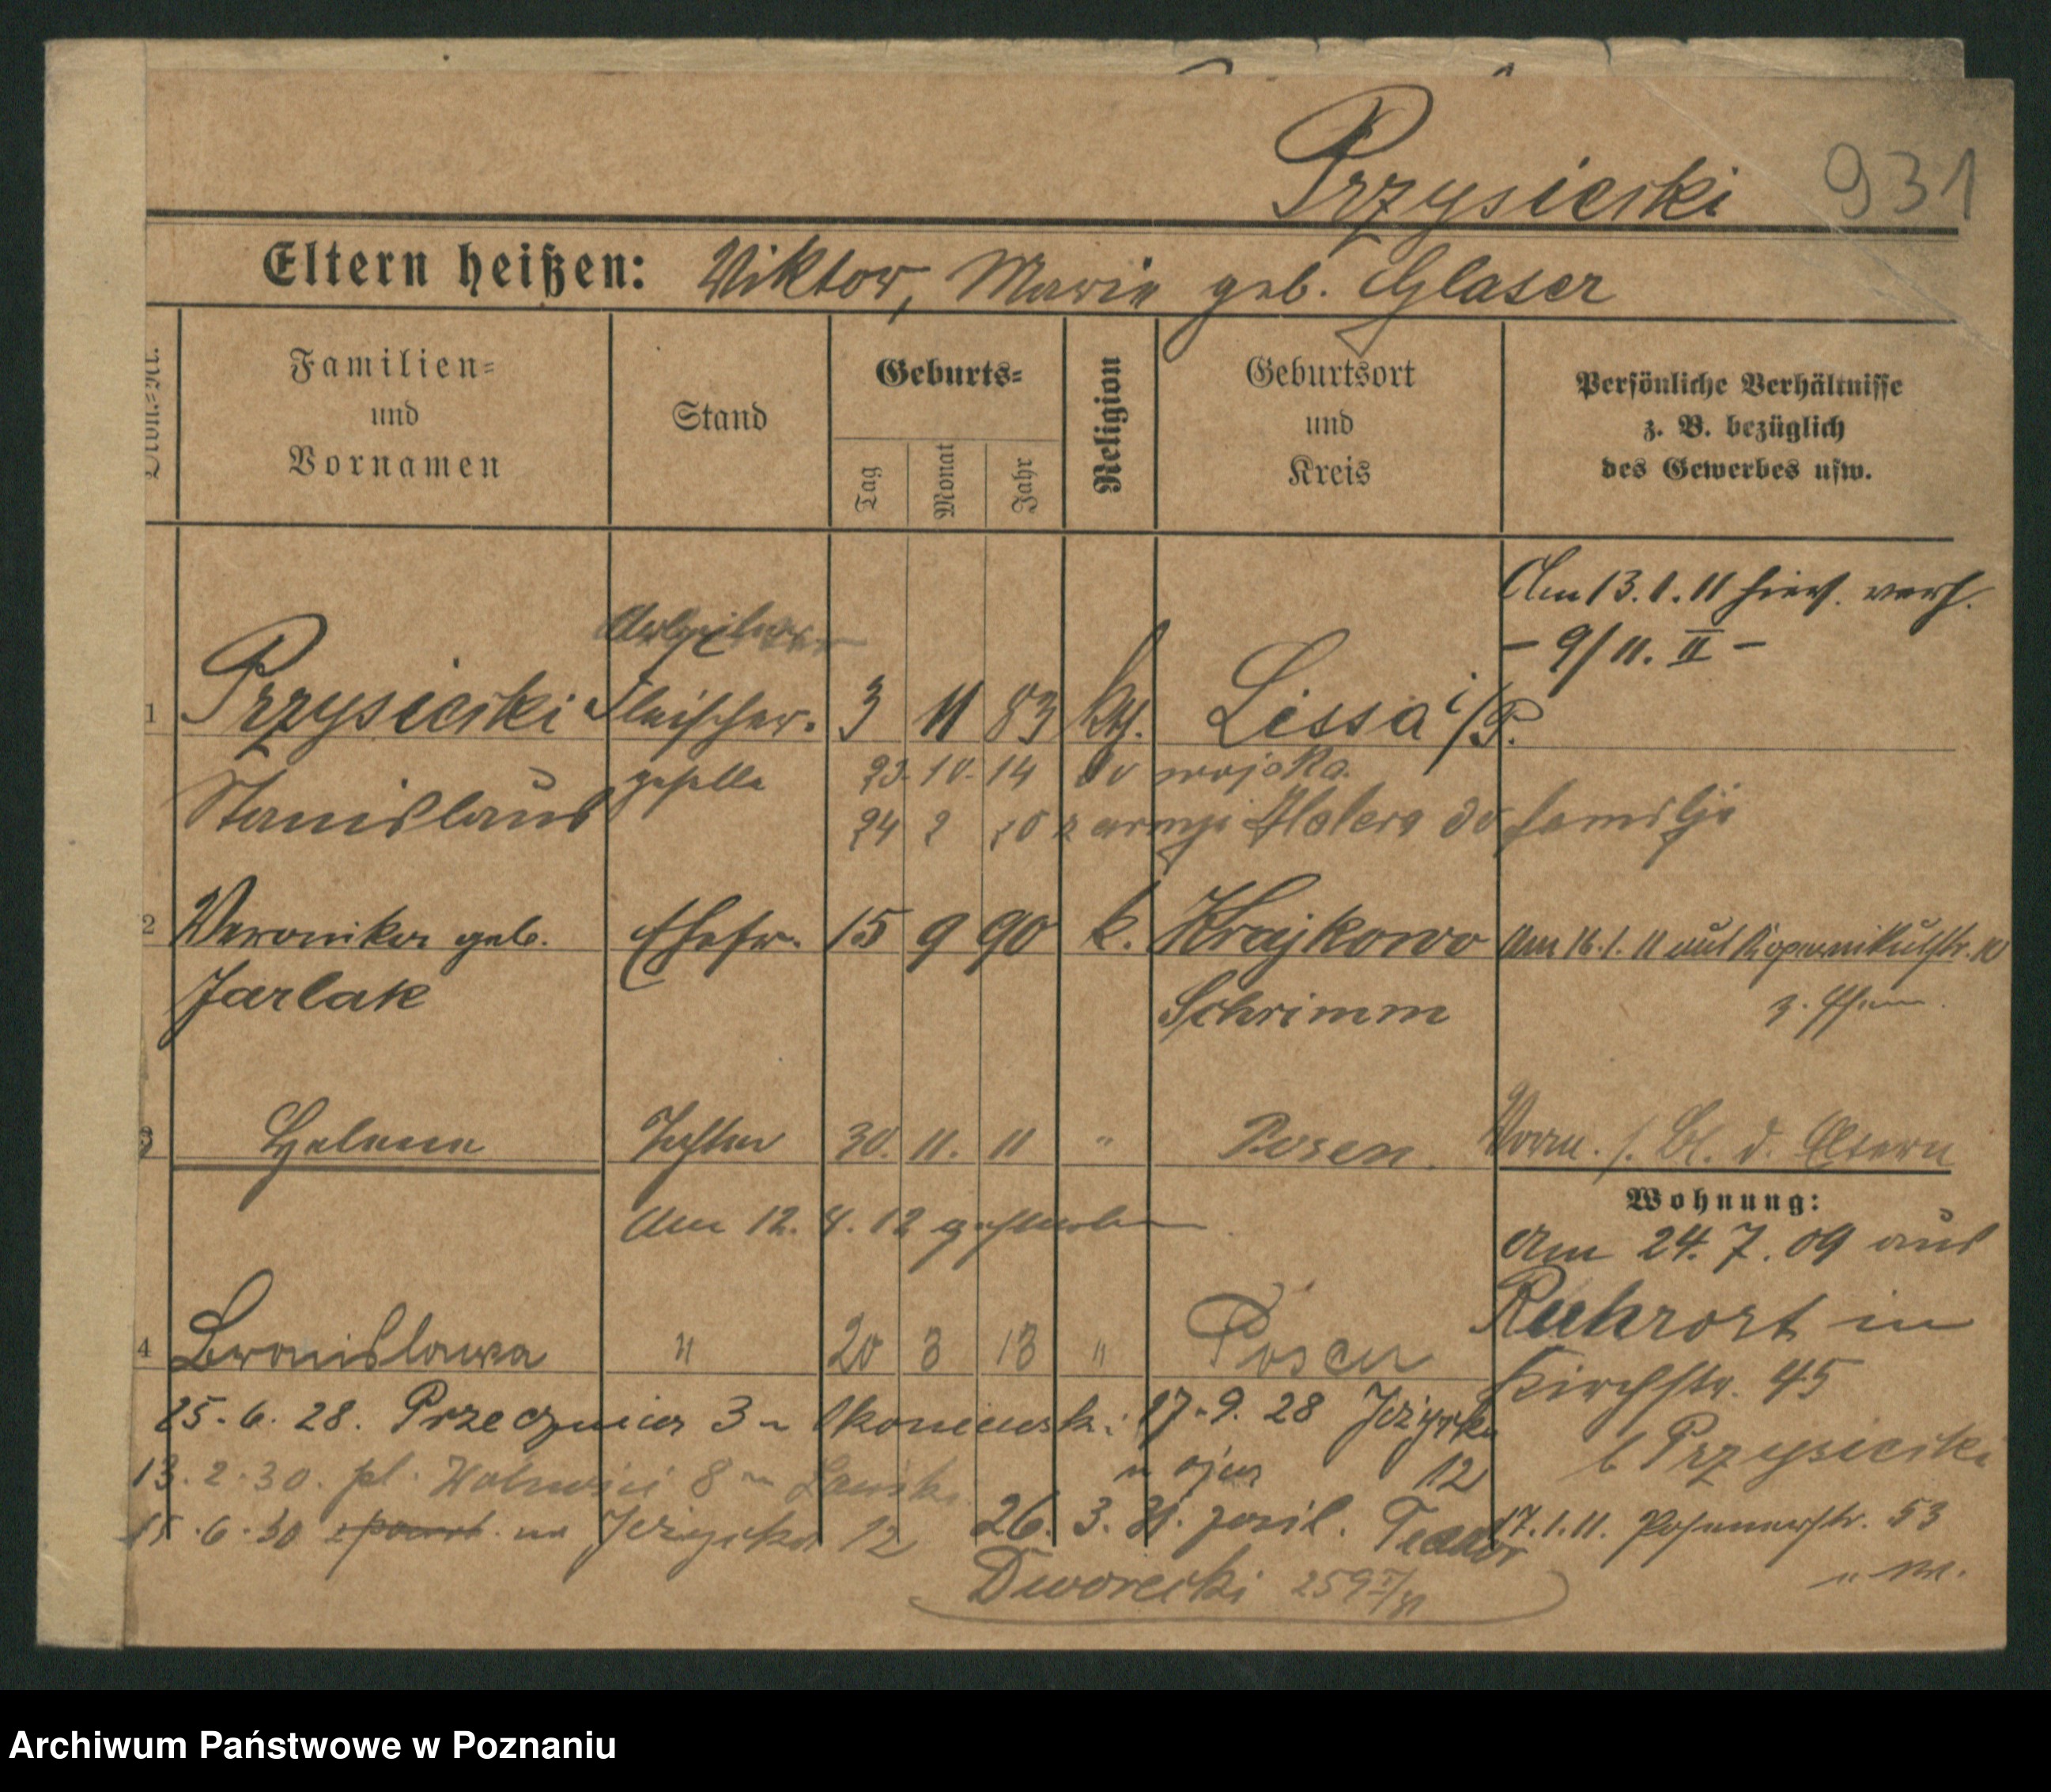 Przysiecki 931
Eltern heißen: Viktor, Marie geb. Glaser
Familien- und Vornamen
Stand
Geburts-
Tag
Monat
Jahr
Religion
Geburtsort und Kreis
Persönliche Verhältnisse
z. B. bezüglich
des Gewerbes usw.
Am 13.1.11 hier verh.
- 9/11. II -
Arbeiter
1 Przysiecki Fleischer- 3 11 83 kth. Lissa i/P.
Stanislaus geselle 23. 10. 14 do wojska.
24 2 20 z armji Hallera do familji
2 Veronika geb. Ehefr. 15 9 90 k. Krajkowo Am 16.1.11 aus Kopernikusstr. 10
Jarlak Schrimm z. Ehem.
3 Helene Tochter 30. 11. 11 " Posen. Vorm. s. Bl. d. Eltern
Am 12. 4. 12 gestorben
Wohnung:
Am 24.7.09 aus
Ruhrort in
Kirchstr. 45
b Przysiecki
17.1.11. Posenerstr. 53
4 Bronislawa " 20 3 13 " Posen
25. 6. 28. Przecznica 3 Okoniewski 17.9.28 Jeżycka
u ojca 12
13. 2. 30. pl. 8
15. 6. 30 na Jeżycka 12 26. 3. 31. Teodor
Dworecki 259
Archiwum Państwowe w Poznaniu